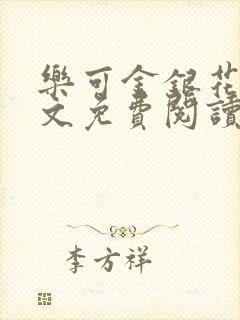 樂可金銀花
文免費閱讀
李方祥